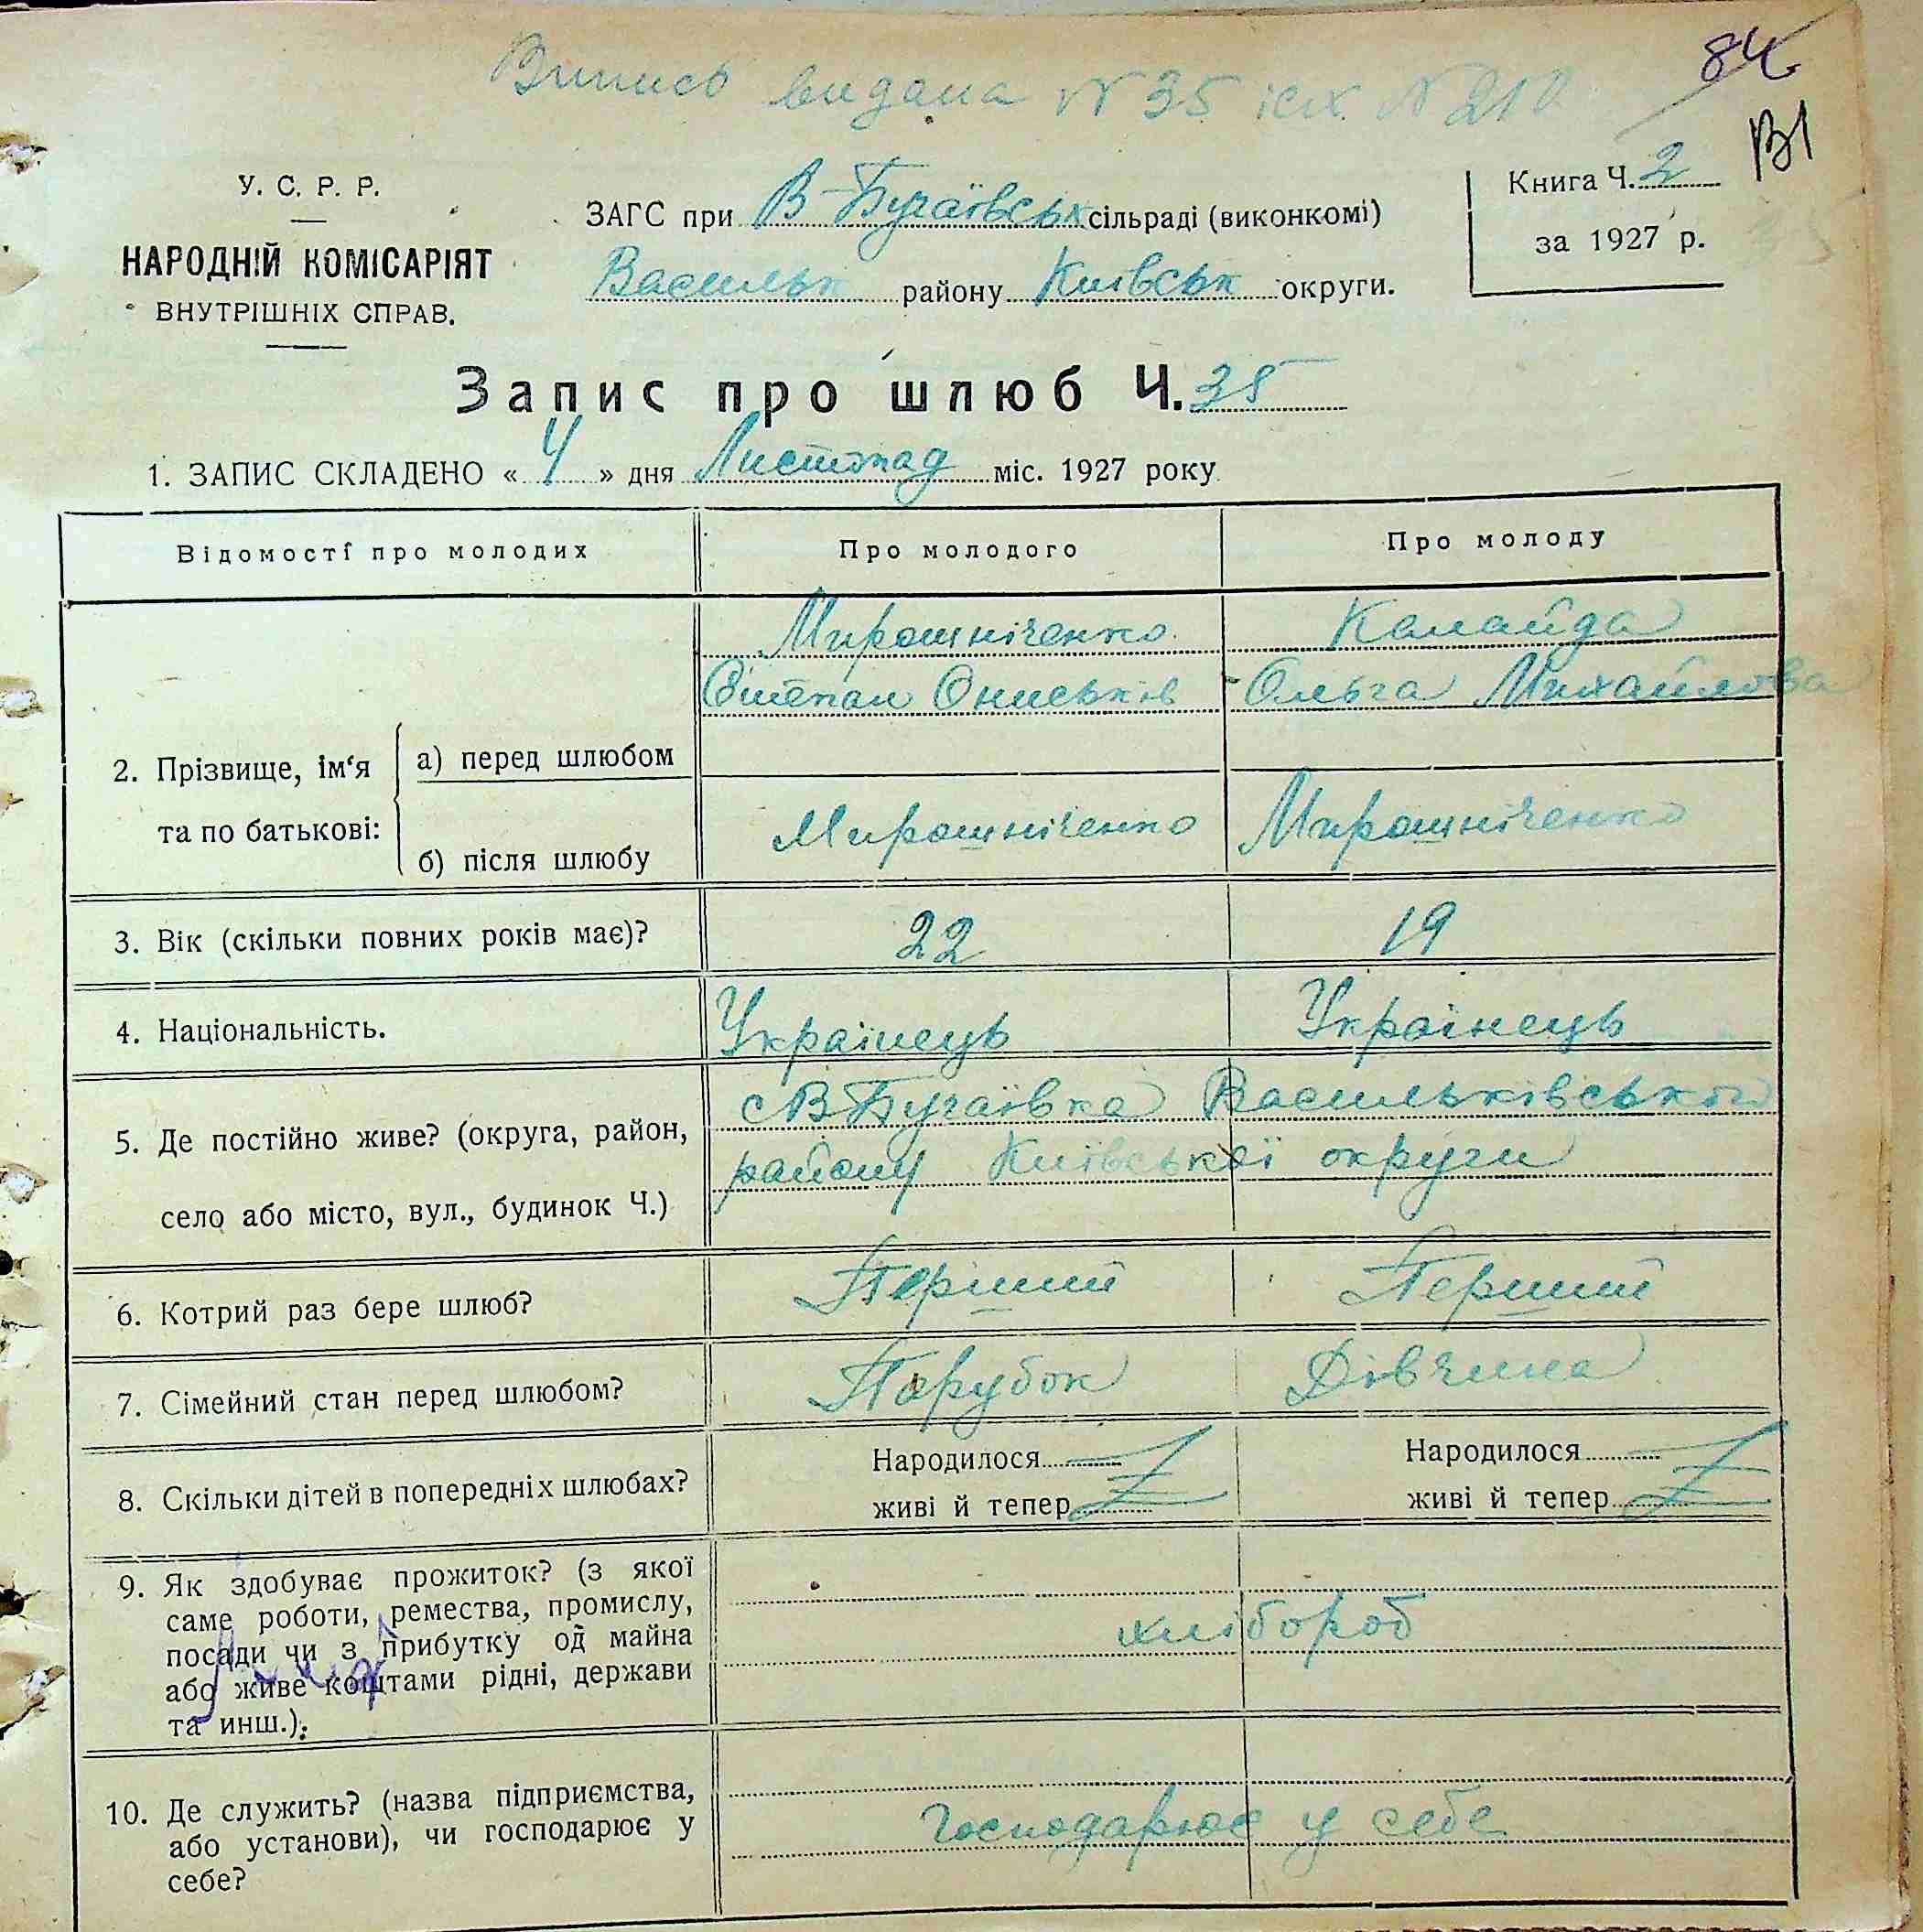 Випись видана N 35 ісх N 210
84
У. С. Р. Р.
НАРОДНІЙ КОМІСАРІЯТ
ВНУТРІШНІХ СПРАВ.
ЗАГС при В-Бугаївськ сільраді (виконкомі)
Васильк району Київськ округи.
Книга Ч. 2
за 1927 р.
Запис про шлюб Ч. 35
1. ЗАПИС СКЛАДЕНО « 4 » дня Листопад міс. 1927 року
Відомості про молодих Про молодого Про молоду
Мирошніченко Камайда
Степан Ониськів Ольга Михайлова
2. Прізвище, ім‘я та по батькові:
а) перед шлюбом
б) після шлюбу Мирошніченко Мирошніченко
3. Вік (скільки повних років має)? 22 19
4. Національність. Українець Українець
5. Де постійно живе? (округа, район,
село або місто, вул., будинок Ч.)
с В Бугаївка Васильківського
району Київської округи
6. Котрий раз бере шлюб? Перший Перший
7. Сімейний стан перед шлюбом? Парубок Дівчина
8. Скільки дітей в попередніх шлюбах?
Народилося Народилося
живі й тепер живі й тепер
9. Як здобуває прожиток? (з якої
саме роботи, ремества, промислу,
посади чи з прибутку од майна
або живе коштами рідні, держави
та инш.).
хлібороб
10. Де служить? (назва підприємства,
або установи), чи господарює у
себе?
Господарює у себе